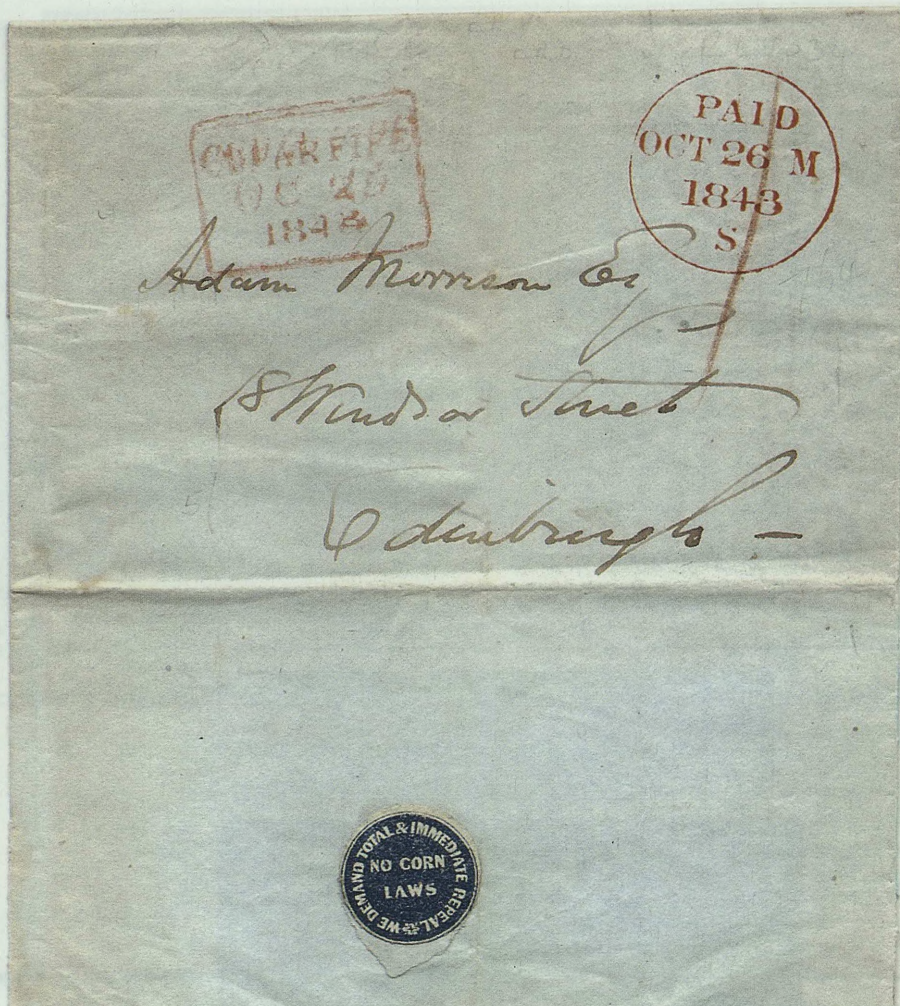 CUPAR FIFE
OC
184
PAID
OCT 26 M
1843
S
Adam Morrison Es
18 Windsor Street
Edinburgh –
WE DEMAND TOTAL & IMMEDIATE REPEAL
NO CORN
LAWS